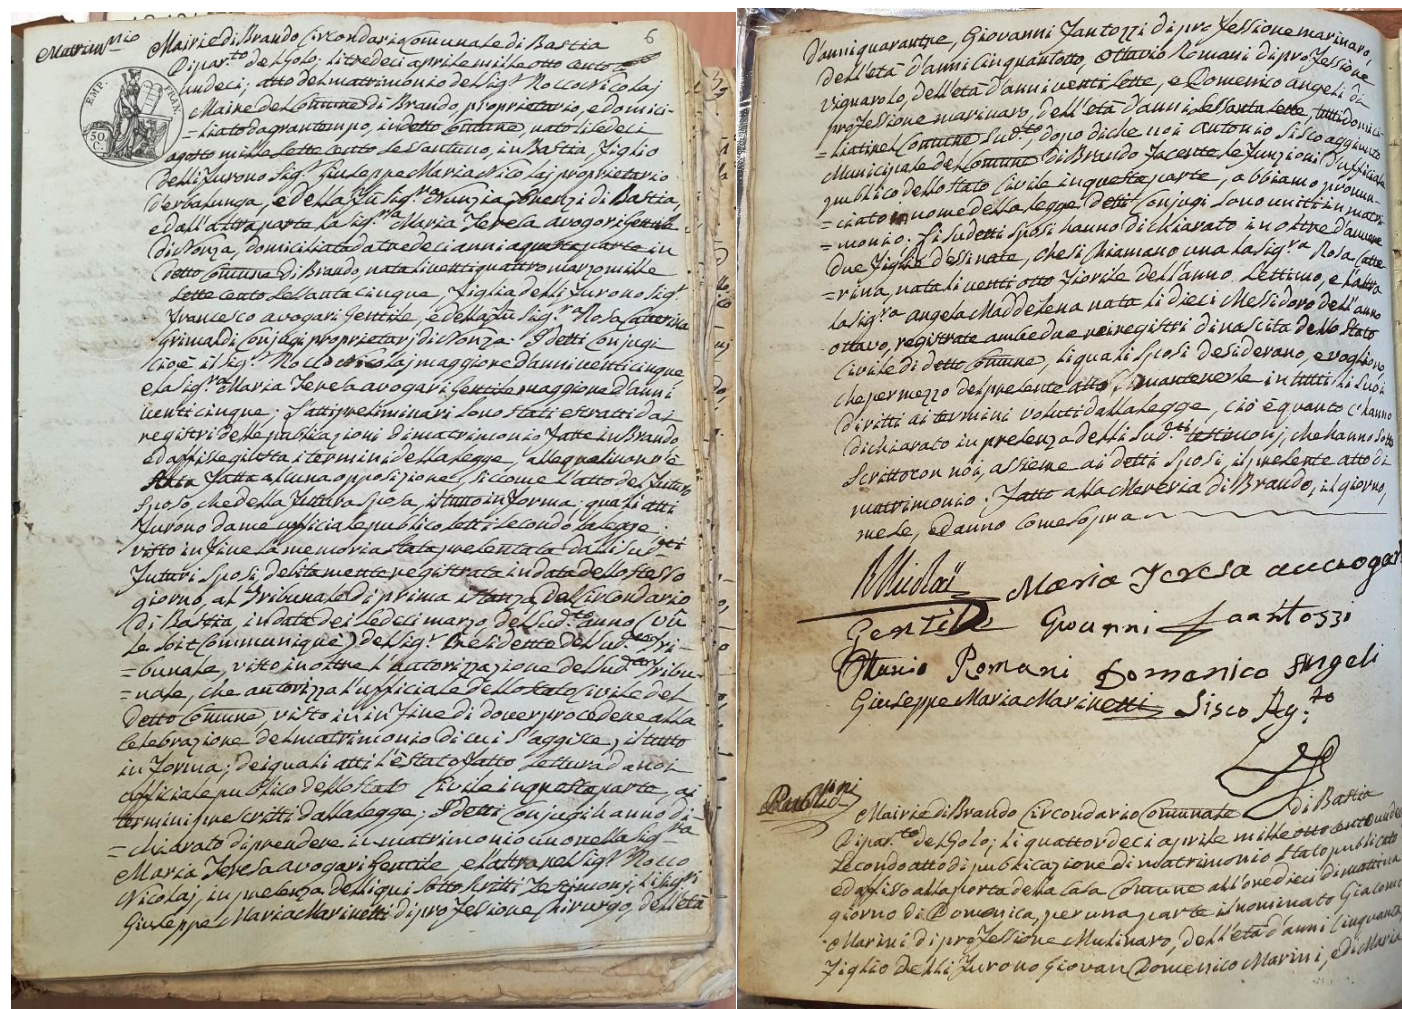 Matrim.nio
6
EMP. FRAN.
50 C.
Mairie di Brando Circondario Comunale di Bastia
Dipar.to del Golo; li tredeci aprile mille otto cento
undeci; atto del matrimonio del Sig.r Rocco Nicolaj
Maire del Comune di Brando, proprietario, e domici-
=liato da gran tempo, in detto Comune, nato li sedeci
agosto mille sette cento sessantuno, in Bastia, figlio
delli furono Sig.r Giuseppe Maria Nicolaj proprietario
d'erbalunga, e della fù Sig.ra Nunzia Orenzi di Bastia,
e dall'altra parte la Sig.ra Maria Teresa avogari Gentile
di Nonza, domiciliata da tredeci anni a questa parte in
detto Comune di Brando, nata li venti quattro marzo mille
sette cento sessanta cinque, figlia delli furono Sig.r
Francesco avogari Gentile, e della fù Sig.ra Rosa Catterina
Grimaldi Conjugi proprietarj di Nonza. I detti Conjugi
cioè il Sig.r Rocco Nicolaj maggiore d'anni venti cinque,
e la Sig.ra Maria Teresa avogari Gentile maggiore d'anni
venti cinque; gl'atti preliminari sono stati estratti dai
registri delle publicazioni di matrimonio fatte in Brando,
ed affisse giusta i termini della legge, alle quali non v'è
stata fatta alcuna opposizione, siccome l'atto del futuro
sposo, che della futura sposa, il tutto in forma; quali atti
furono da me ufficiale publico letti secondo la legge;
visto in fine la memoria stata presentata dalli sud.tti
futuri sposi, debitamente registrata in data dello stesso
giorno, al Tribunale di prima istanza del Circondario
di Bastia, in data dei sedeci marzo del sud.to anno (vû
le soit Communiqué) del Sig.r Presidente del sud.to Tri-
=bunale, visto inoltre l'autorizazione del sud.to Tribu-
=nale, che autorizza l'ufficiale dello stato Civile del
detto Comune, visto in fine di dover procedere alla
celebrazione del matrimonio di cui s'aggisce, il tutto
in forma; dei quali atti l'è stato fatto lettura da noi
officiale publico dello stato Civile in questa parte, ai
termini prescritti dalla legge. I detti Conjugi hanno di-
=chiarato di prendere in matrimonio uno nella Sig.ra
Maria Teresa avogari Gentile e l'altra nel Sig.r Rocco
Nicolaj, in presenza delli qui sotto scritti Testimonj, li Sig.ri
Giuseppe Maria Marinetti di professione Chirurgo, dell'età
d'anni quarantre, Giovanni Fantozzi di professione marinaro,
dell'età d'anni cinquantotto, Ottavio Romani di professione
vignarolo, dell'età d'anni venti sette, e Domenico Angeli di
professione marinaro, dell'età d'anni sessanta sette, tutti domici-
=liati nel Comune Sud.to, dopo di che noi Antonio Sisco aggiunto
Municipale del Comune di Brando facente le funzioni d'ufficiale
publico dello stato Civile in questa parte, abbiamo pronun-
=ciato in nome della legge detti Conjugi sono uniti in matri-
=monio. Li sudetti sposi hanno dichiarato in oltre d'avere
due figlie d'essi nate, che si chiamano una la Sig.ra Rosa Catte
=rina, nata li venti otto fiorile dell'anno settimo, e l'altra
la Sig.ra Angela Maddalena nata li dieci Mesidoro dell'anno
ottavo, registrate ambedue nei registri di nascita dello stato
Civile di detto Comune, li quali sposi desiderano, e vogliono,
che per mezzo del presente atto, mantenerle in tutti li suoi
diritti ai termini voluti dalla legge, ciò è quanto c'hanno
dichiarato in presenza delli sud.tti testimonj, che hanno sotto
scritto con noi, assieme ai detti sposi, il presente atto di
matrimonio. Fatto alla Mereria di Brando, il giorno,
mese, ed anno come sopra
RNicolaï Maria Teresa auuogari
Gentile Giouanni fanttoszi
Ottauio Romani Domenico Angeli
Giuseppe Maria Marinetti Sisco Ag.to
Publicni
Mairie di Brando Circondario Comunale di Bastia
Dipar.to del Golo; li quattordeci aprile mille otto cento undeci
secondo atto di publicazione di matrimonio stato publicato
ed affisso alla porta della casa Comune all'ore dieci di mattina
giorno di Domenica, per una parte il nominato Giacomo
Marini di professione Mulinaro, dell'età d'anni cinquanta
figlio delli furono Giovan Domenico Marini, e di Maria